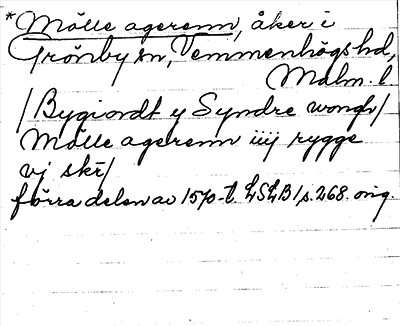 *Mölle agerenn, åker i
Grönby sn, Vemmenhögs hd,
Malm. l
/Bygiordt y Syndre wongh/
Mölle agerenn iiij rygge
vj skr/
förra delen av 1570-t. LSLB 1 s. 268. orig.